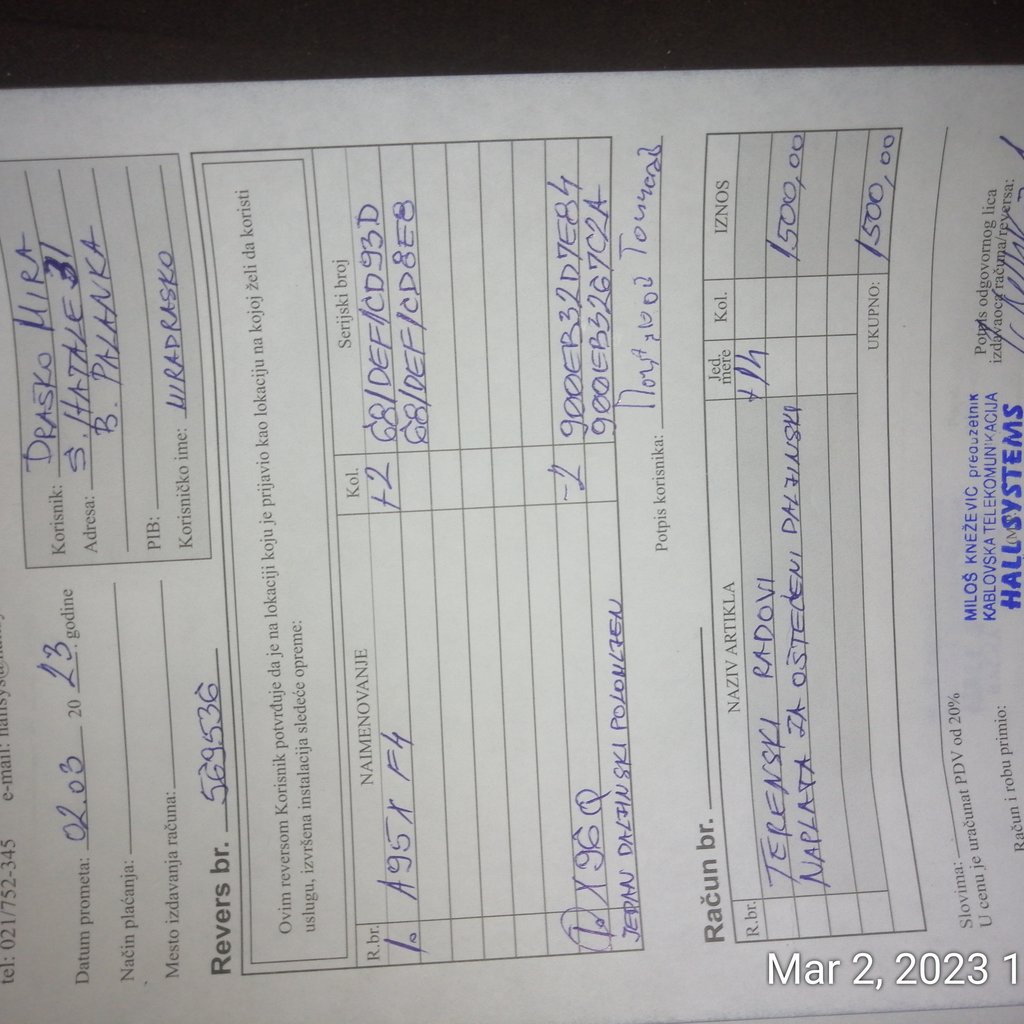 tel: 021/752-345 e-mail:
Datum prometa: 02.03 20 23. godine
Način plaćanja:
Mesto izdavanja računa:
Korisnik: DRAŠKO MIRA
Adresa: Š. MATALE 31
B. PALANKA
PIB:
Korisničko ime: MIRADRASKO
Revers br. 569536
Ovim reversom Korisnik potvrđuje da je na lokaciji koju je prijavio kao lokaciju na kojoj želi da koristi
uslugu, izvršena instalacija sledeće opreme:
R.br. NAIMENOVANJE Kol. Serijski broj
1. A95X F4 +2 681DEF1CD93D
681DEF1CD8E8
1. X96Q -2 9000EB32D7E84
9000EB3267C2A
JEDAN DALJINSKI POLOMLJEN
Potpis korisnika:
Račun br.
R.br. NAZIV ARTIKLA Jed. mere Kol. IZNOS
TERENSKI RADOVI
NAPLATA ZA OŠTEĆENI DALJINSKI 1500,00
UKUPNO: 1500,00
Slovima:
U cenu je uračunat PDV od 20%
Račun i robu primio:
MILOŠ KNEŽEVIĆ preduzetnik
KABLOVSKA TELEKOMUNIKACIJA
HALL SYSTEMS
Potpis odgovornog lica
izdavaoca računa/reversa:
Mar 2, 2023 1